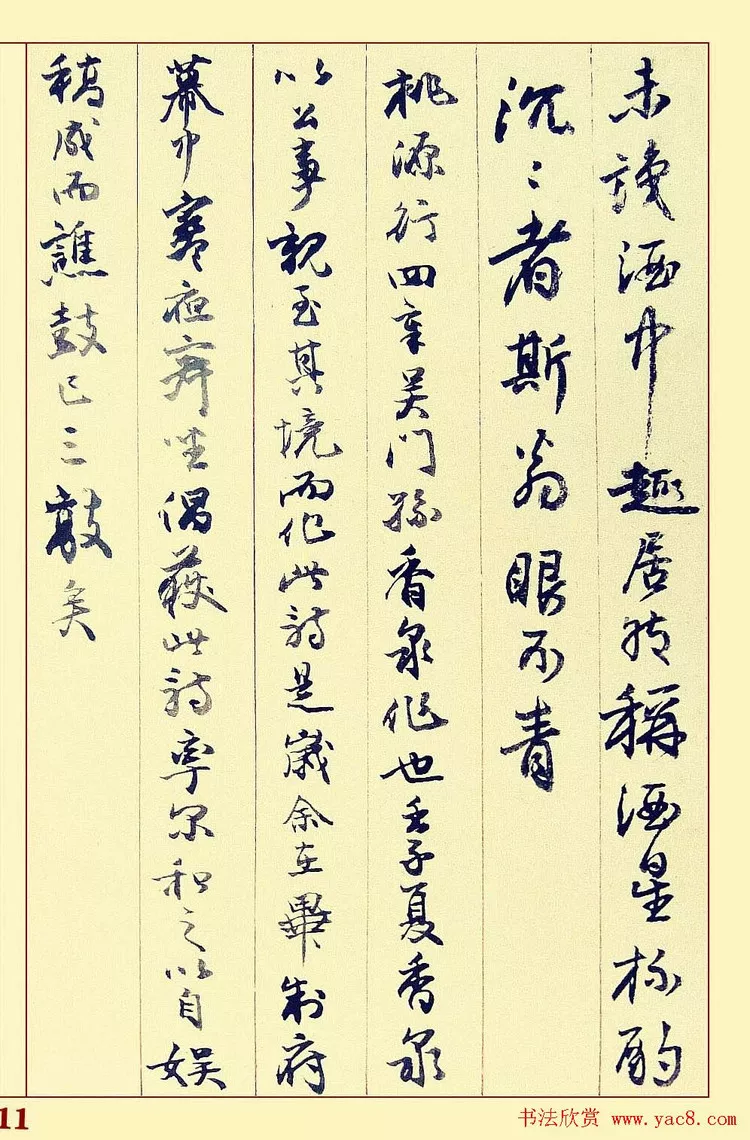 未識酒中趣居然稱酒星杯酌
沉〻者斯翁眼不青
桃源行四章吴門孫香泉作也壬子夏香泉
以公事親至其境而作此詩是歲余在畢制府
幕中寒夜齋坐偶獲此詩率尔和之以自娱
稿成而譙鼓已三敲矣
11
书法欣赏 www.yac8.com